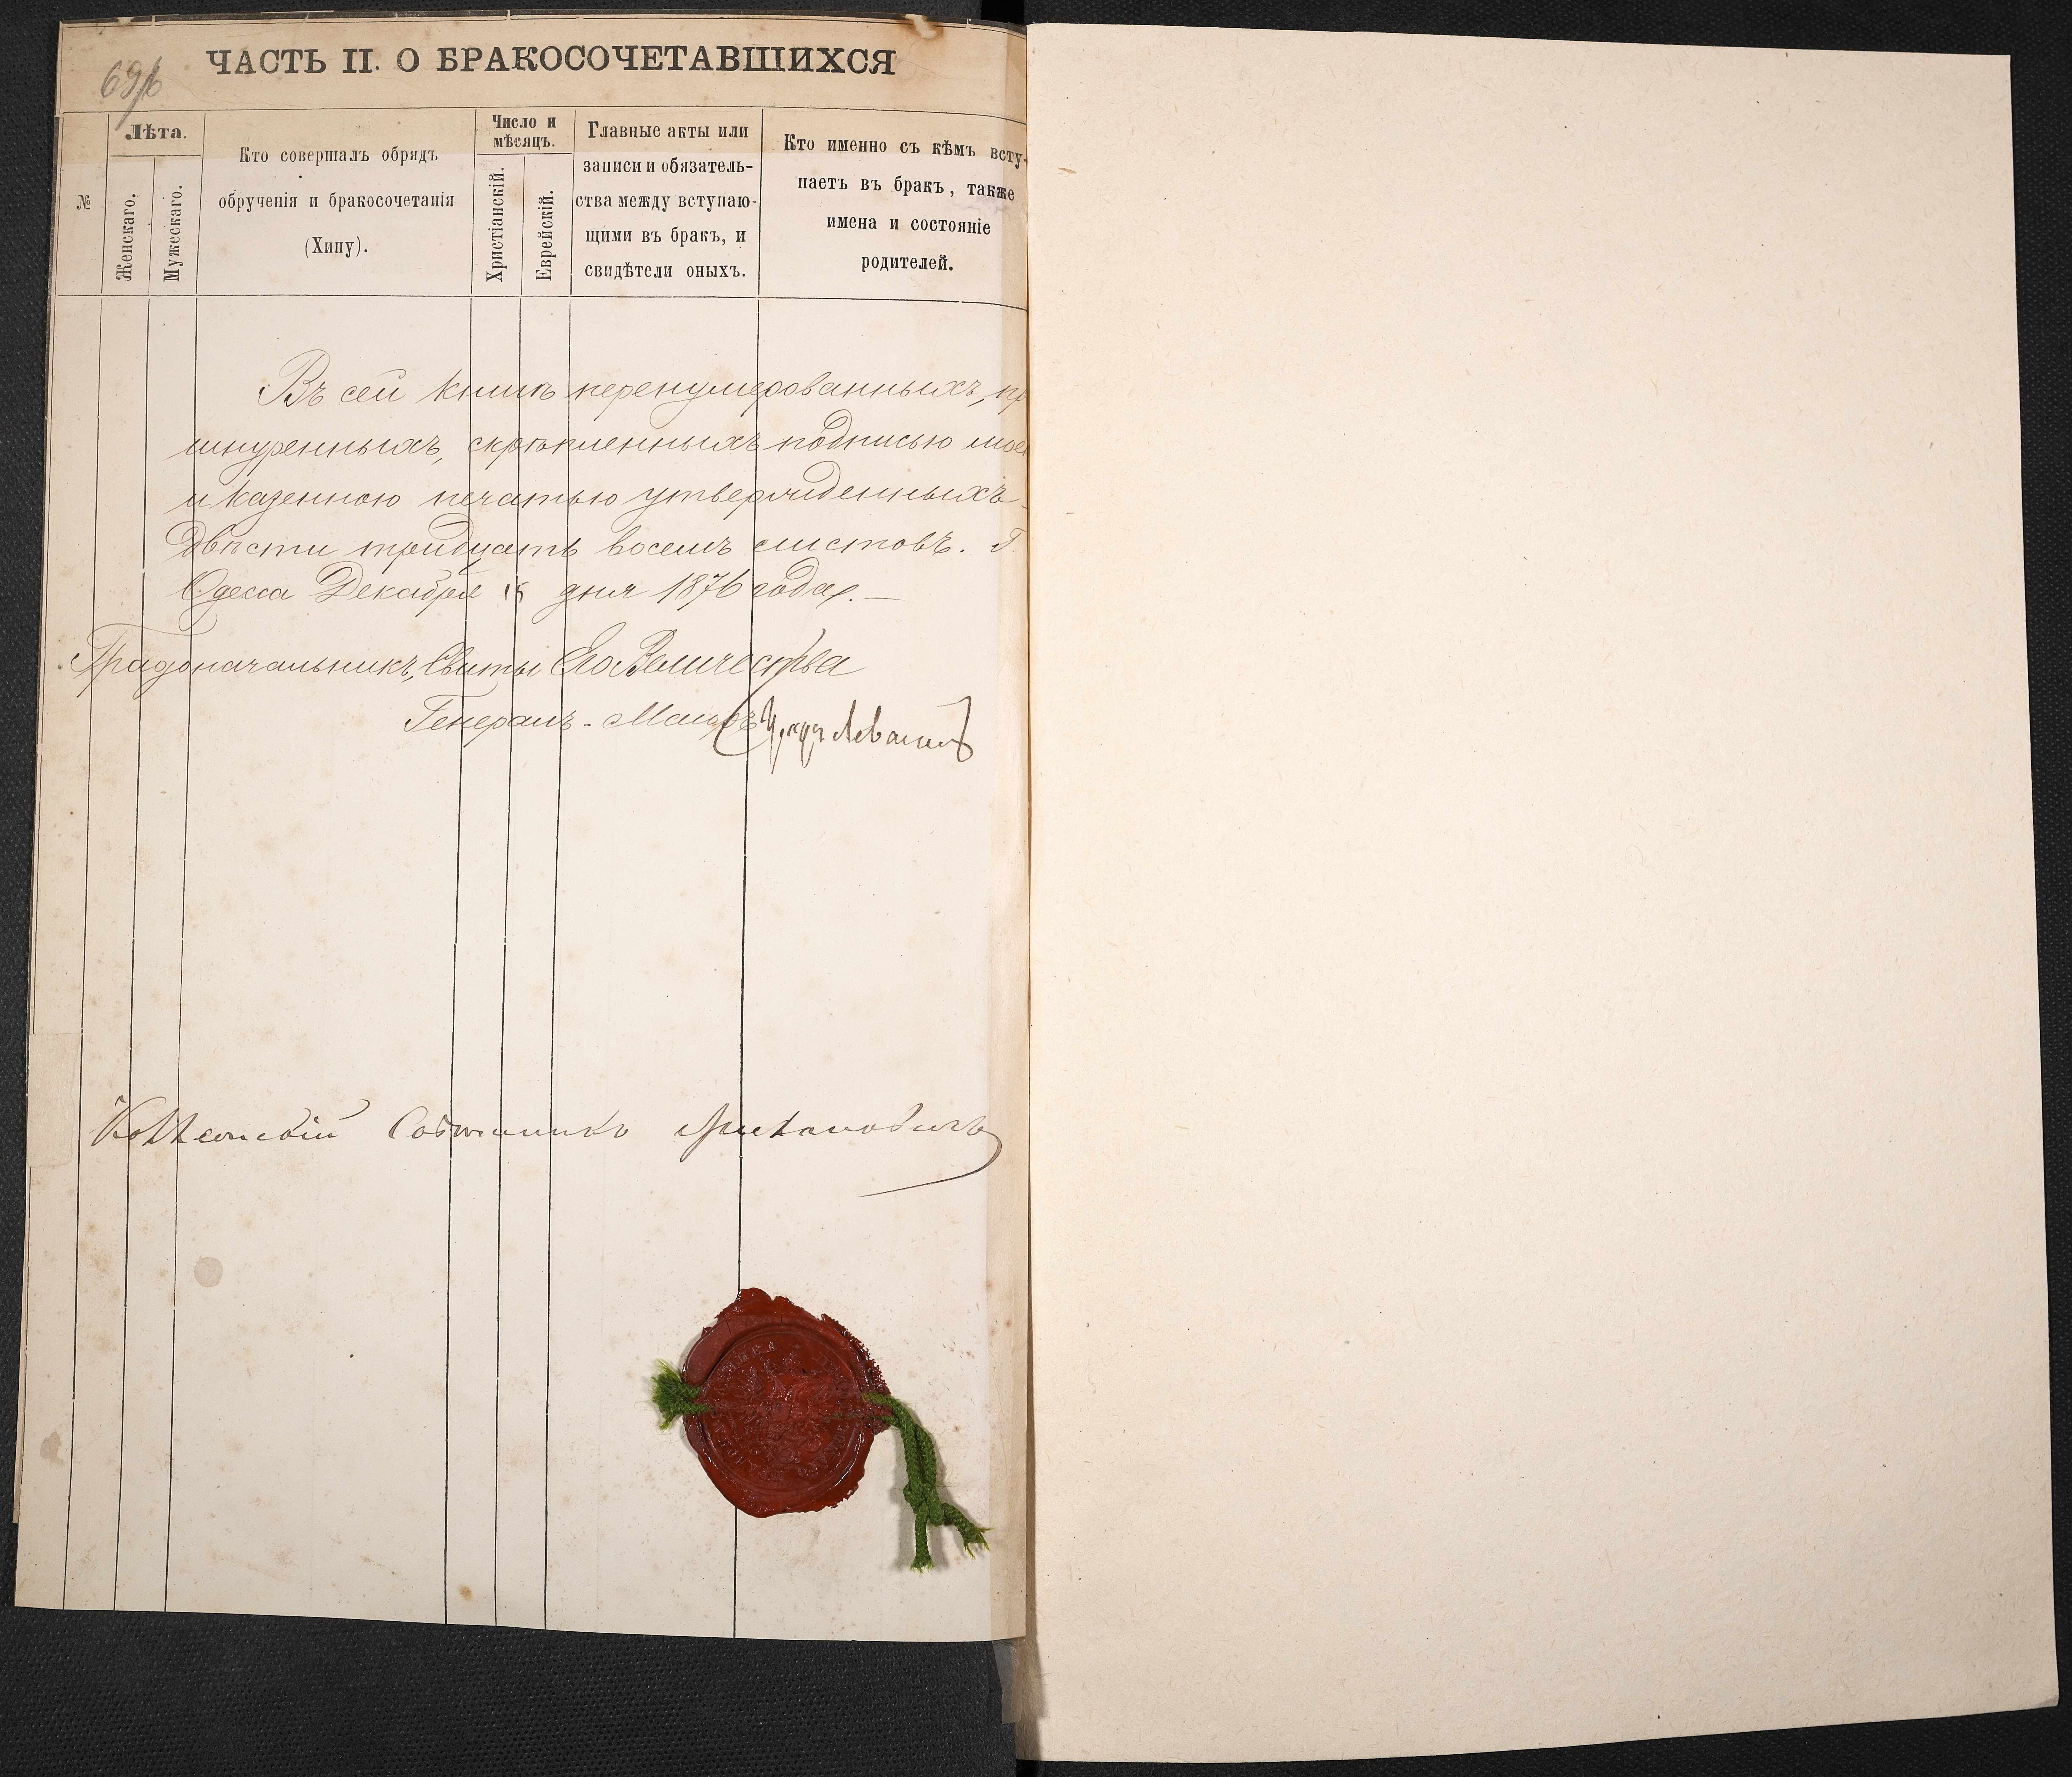 ЧАСТЬ II. О БРАКОСОЧЕТАВШИХСЯ
№
Лѣта.
Женскаго.
Мужескаго.
Кто совершалъ обрядъ
обрученія и бракосочетанія
(Хипу).
Число и
мѣсяцъ.
Христіанскій.
Еврейскій.
Главные акты или
записи и обязатель-
ства между вступаю-
щими въ бракъ, и
свидѣтели оныхъ.
Кто именно съ кѣмъ всту-
паетъ въ бракъ, также
имена и состояніе
родителей.
Въ сей книгѣ перенумерованныхъ, пр
шнуренныхъ, скрѣпленныхъ подписью мое
и казенною печатью утвержденныхъ
двѣсти тридцать восемь листовъ. Г.
Одесса Декабря дня 1876 года.—
Градоначальникъ, Свиты Его Величества
Генералъ-Маіоръ Левашовъ
Коллежскій Совѣтникъ